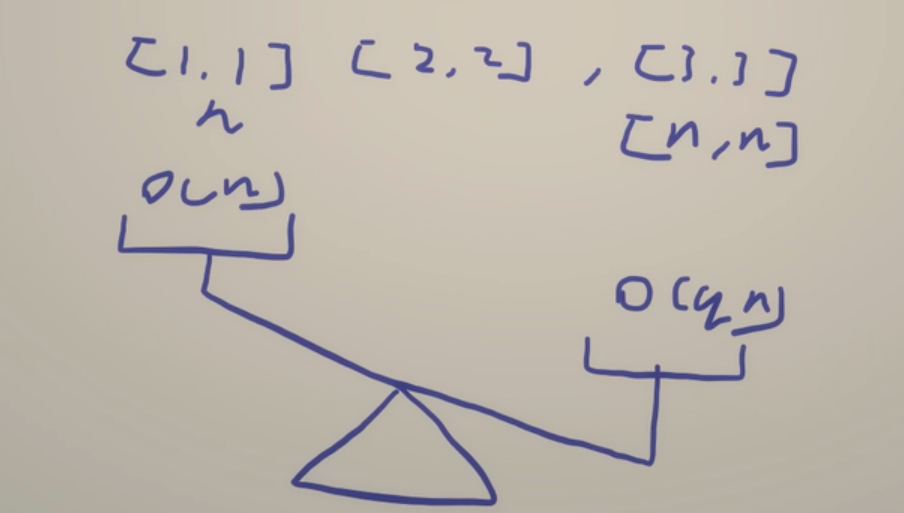 [1,1] [2,2] , [3,3]
n
[n,n]
O(n)
O(qn)